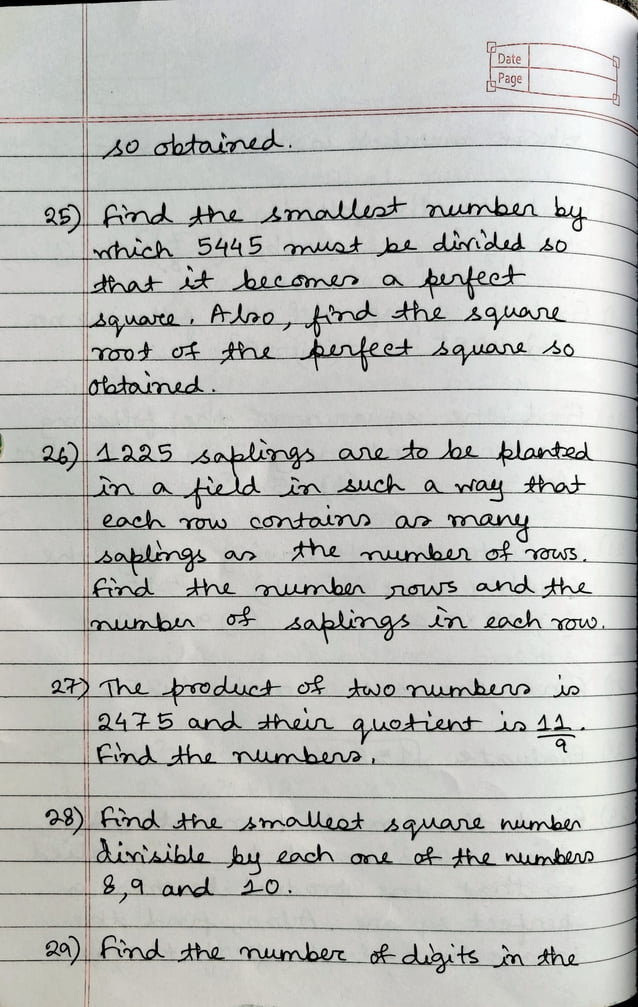 Date
Page
so obtained.
25) Find the smallest number by
which 5445 must be divided so
that it becomes a perfect
square. Also, find the square
root of the perfect square so
obtained.
26) 1225 saplings are to be planted
in a field in such a way that
each row contains as many
saplings as the number of rows.
Find the number rows and the
number of saplings in each row.
27) The product of two numbers is
2475 and their quotient is 11/9.
Find the numbers.
28) Find the smallest square number
divisible by each one of the numbers
8,9 and 10.
29) Find the number of digits in the